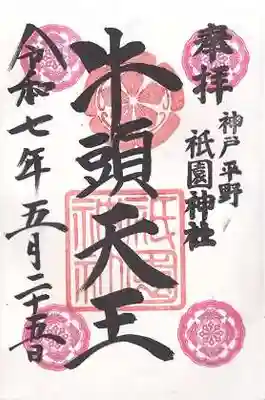 奉拝
神戸平野
祇園神社
牛頭天王
令和七年五月二十五日